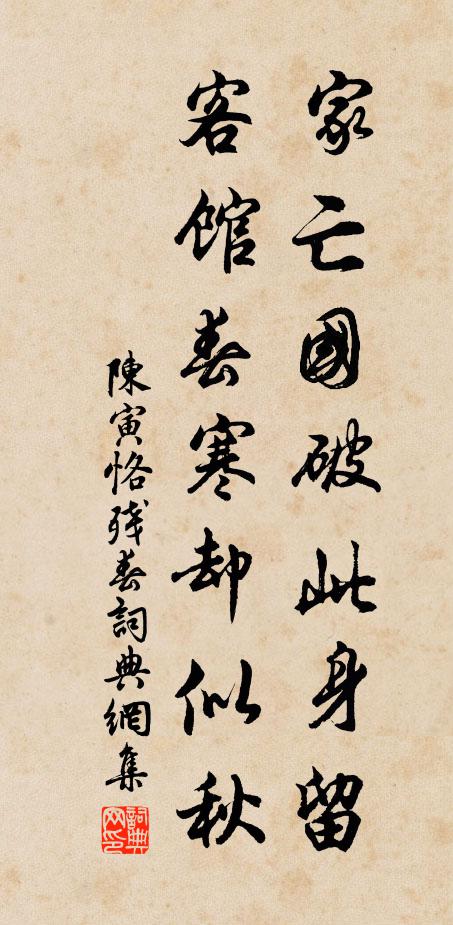 家亡國破此身留
客館春寒却似秋
陳寅恪殘春詞典網集
詞典網印